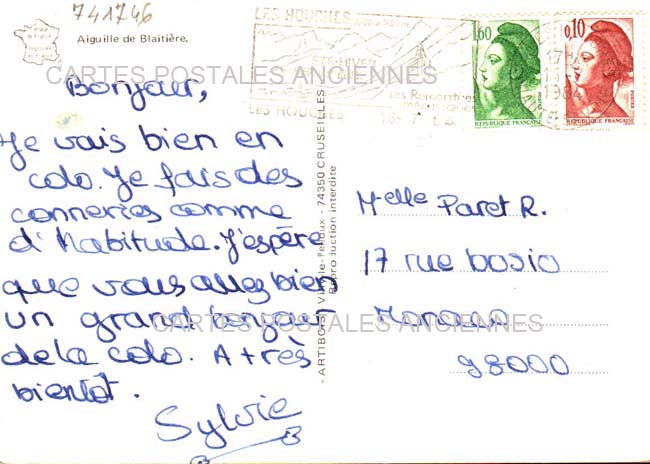 741746
Aiguille de Blaitière.
LES HOUCHES
ÉTÉ-HIVER
ses Remontées
mécaniques
LES HOUCHES
1,60
0,10
1984
REPUBLIQUE FRANÇAISE
REPUBLIQUE FRANÇAISE
CARTES POSTALES ANCIENNES
Bonjour,
Je vais bien en
colo. Je fais des
conneries comme
d'habitude. J'espère
que vous allez bien
un grand bonjour
de la colo. A très
bientôt.
Sylvie
- 74350 CRUSEILLES -
Reproduction interdite
Melle Paret R.
17 rue bosio
Monaco
98000
CARTES POSTALES ANCIENNES